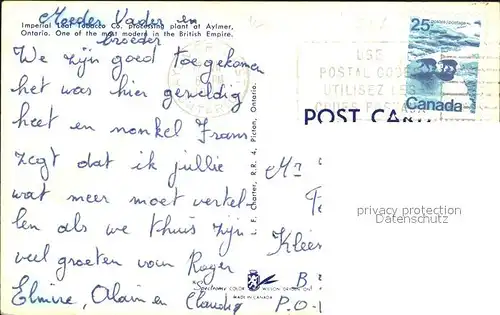 Moeder Vader en
broeder
Imperial Leaf Tobacco Co. processing plant at Aylmer,
Ontario. One of the most modern in the British Empire.
We zijn goed toegekomen
het was hier geweldig
heet en nonkel Frans
zegt dat ik jullie
wat meer moet vertel-
len als we thuis zijn
veel groeten van Roger
Elmire, Alain en Claudy
L. F. Charter, R.R. 4, Picton, Ontario.
MADE IN CANADA
25
postes/postage
Canada
USE
POSTAL CODE
UTILISEZ LES
CODES POSTAUX
POST CAR
Mr
Klees
B
P.O-
privacy protection
Datenschutz